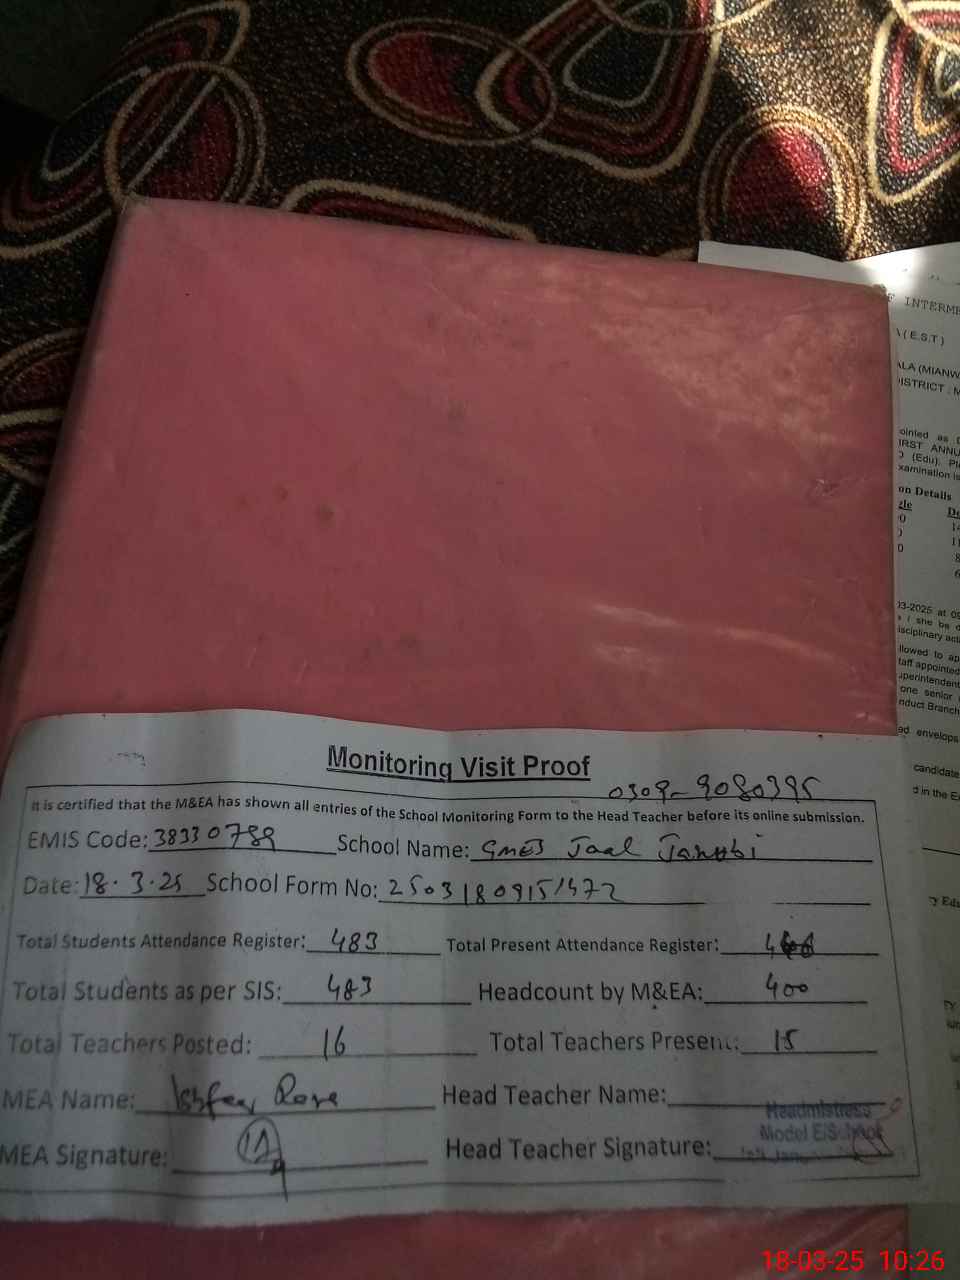 F INTERME
A ( E.S.T )
ALA (MIANW
DISTRICT : M
ointed as D
IRST ANNU
D (Edu). Pl
xamination is
on Details
gle De
0 14
) 11
0 8
6
03-2025 at 09
s / she be d
isciplinary acti
llowed to ap
taff appointed
uperintendent
one senior
nduct Branch
ed envelops
candidate
d in the Ex
y Edu
Monitoring Visit Proof
0309-9080395
It is certified that the M&EA has shown all entries of the School Monitoring Form to the Head Teacher before its online submission.
EMIS Code: 38330789 School Name: GMES Jaal Janubi
Date: 18.3.25 School Form No: 25031809151472
Total Students Attendance Register: 483 Total Present Attendance Register:
Total Students as per SIS: 483 Headcount by M&EA: 400
Total Teachers Posted: 16 Total Teachers Present: 15
MEA Name: Head Teacher Name:
Headmistress
Model E/School
MEA Signature: Head Teacher Signature:
18-03-25 10:26